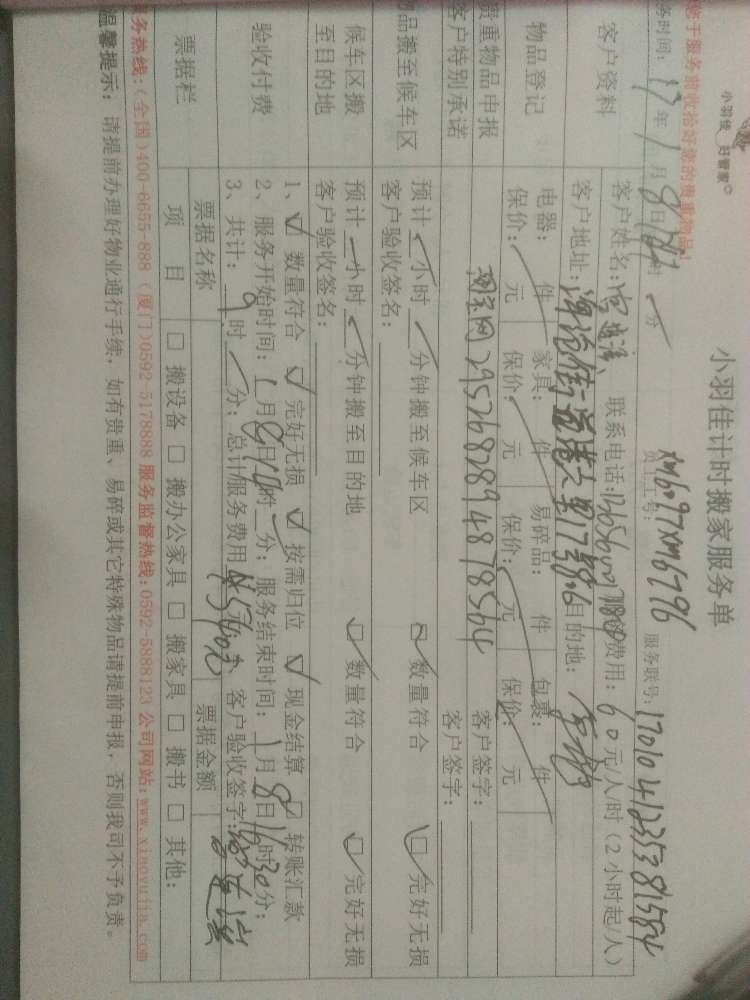 小羽佳 好管家
小羽佳计时搬家服务单
员工工号：XM6097XM6796 服务联号：17010412353815584
务时间：17年1月8日 时 分
您于服务前收拾好您的贵重物品！
客户资料
客户姓名： 联系电话： 费用：60元/人/时（2小时起/人）
客户地址： 目的地：
物品登记
电器： 件 家具： 件 易碎品： 件 包裹： 件
保价： 元 保价： 元 保价： 元 保价： 元
贵重物品申报 客户签字：
客户特别承诺 2957682894878564 客户签字：
物品搬至候车区
预计 小时 分钟搬至候车区 数量符合 完好无损
客户验收签名：
候车区搬至目的地
预计 小时 分钟搬至目的地 数量符合 完好无损
客户验收签名：
验收付费
1、√ 数量符合 √ 完好无损 √ 按需归位 √ 现金结算 □ 转账汇款
2、服务开始时间：1月8日 时 分；服务结束时间：1月8日16时30分；
3、共计：9时 分；总计服务费用 540元 客户验收签字：
票据栏
票据名称 票据金额
项目 □ 搬设备 □ 搬办公家具 □ 搬家具 □ 搬书 □ 其他：
服务热线：（全国）400-6655-888（厦门）0592-5178888 服务监督热线：0592-5888123 公司网站：www.xiaoyujia.com
温馨提示：请提前办理好物业通行手续，如有贵重、易碎或其它特殊物品请提前申报，否则我司不予负责。